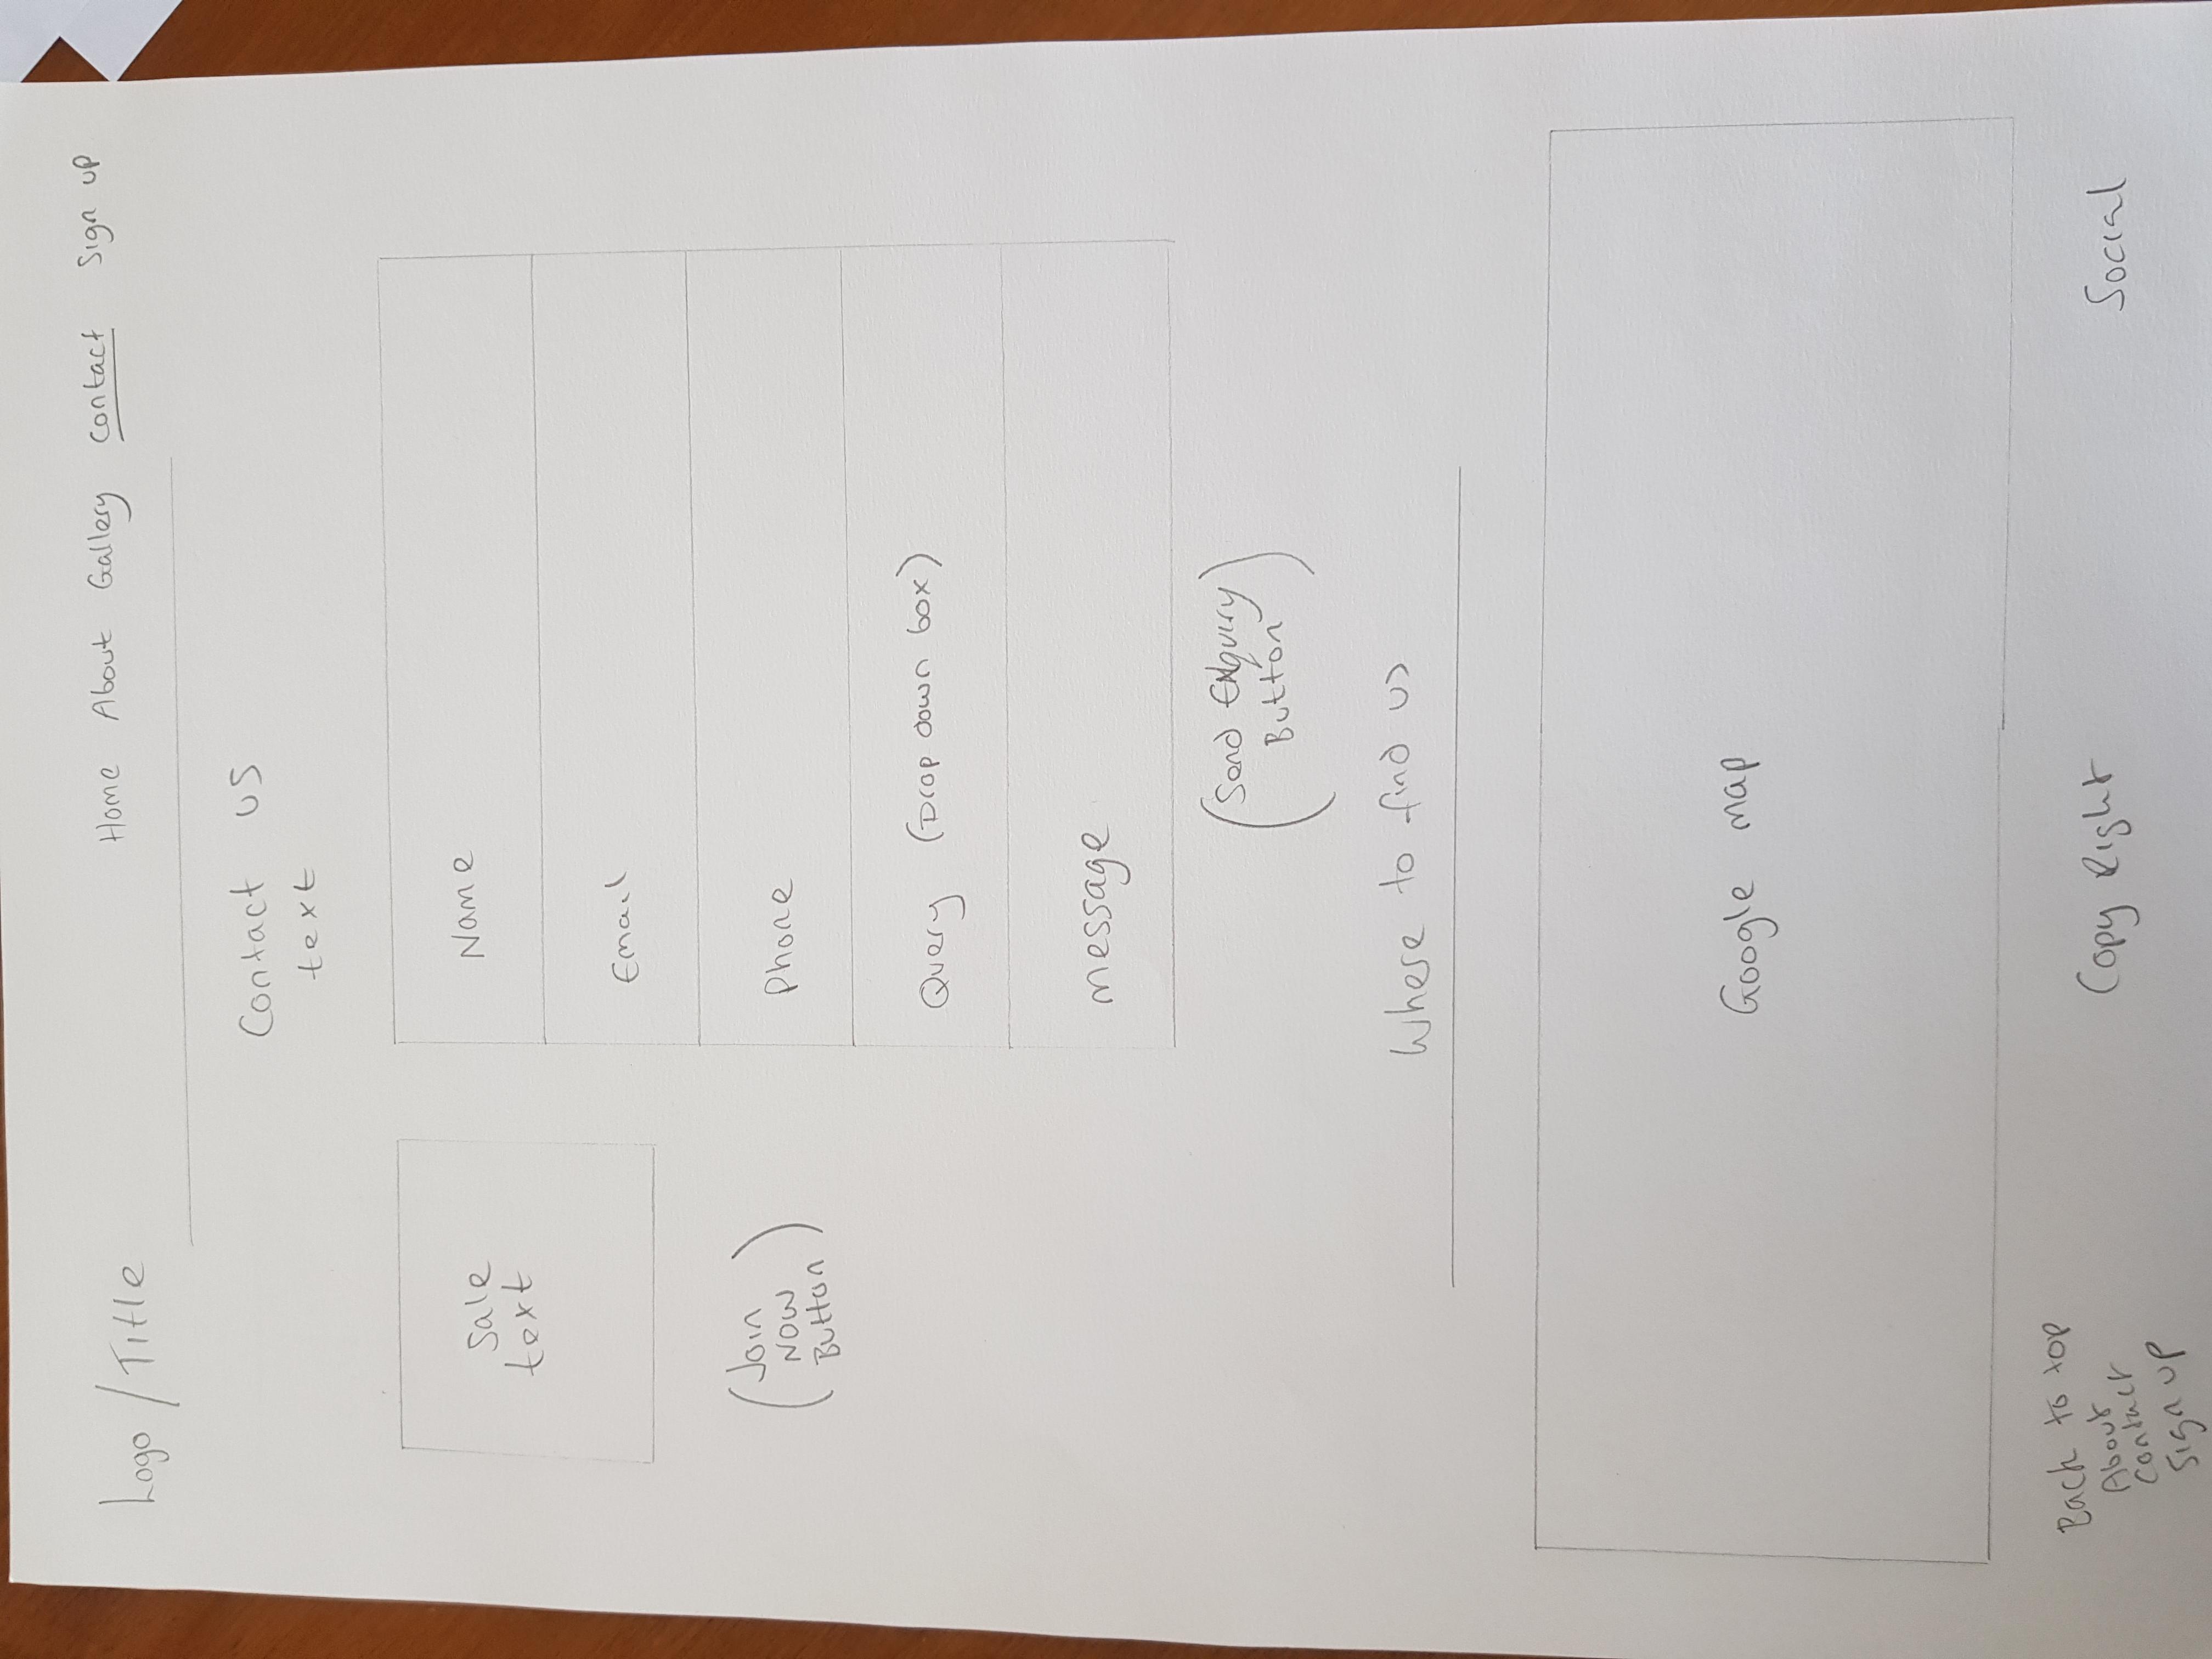 Logo / Title
Home About Gallery contact Sign up
Contact us
text
Sale
text
Join
Now
Button
Name
Email
Phone
Query (Drop down box)
message
(Send Enquiry
Button)
Where to find us
Google map
Back to top
About
Contact
Sign up
Copy Right
Social